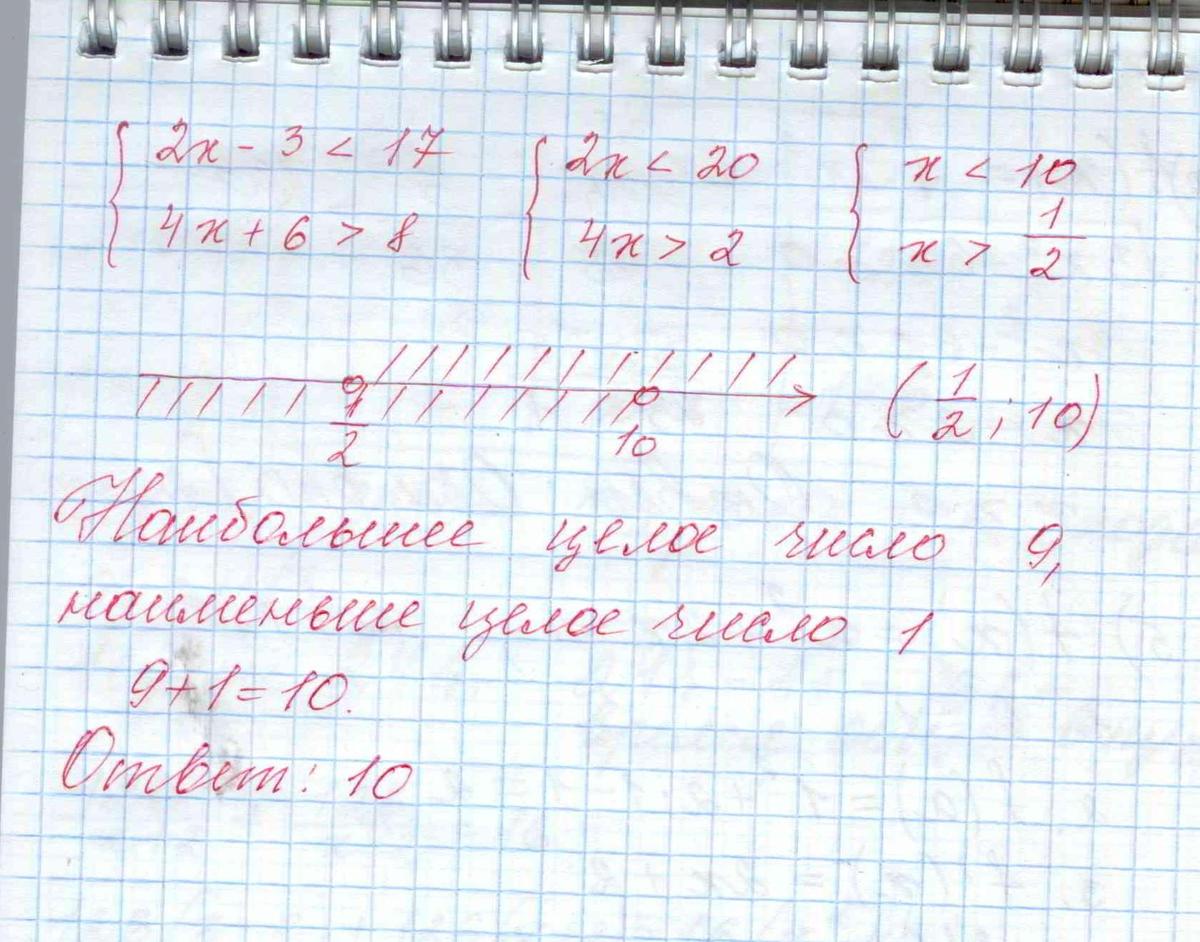 { 2x - 3 < 17 { 2x < 20 { x < 10
4x + 6 > 8 4x > 2 x > 1/2
1/2 10 (1/2 ; 10)
Наибольшее целое число 9,
наименьше целое число 1
9+1=10.
Ответ: 10